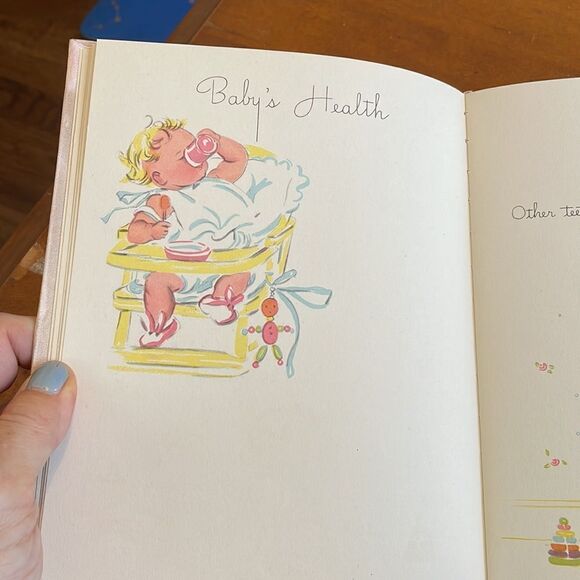 Baby's Health
Other